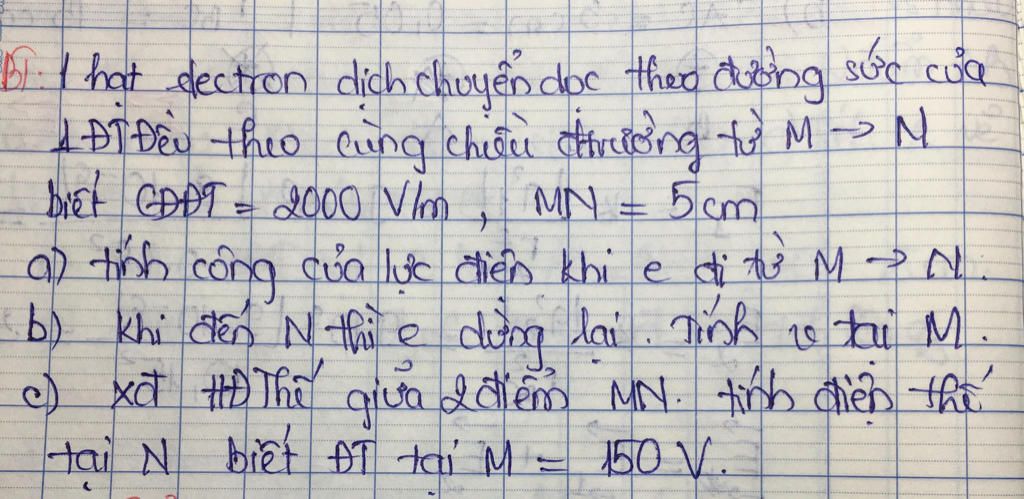 B1. 1 hạt electron dịch chuyển dọc theo đường sức của
1 ĐT Đều theo cùng chiều đtrường từ M → N
biết CĐĐT = 2000 V/m , MN = 5cm
a) tính công của lực điện khi e đi từ M → N.
b) khi đến N thì e dừng lại. Tính v tại M.
c) xđ HĐThế giữa 2 điểm MN. tính điện thế
tại N biết ĐT tại M = 150 V.